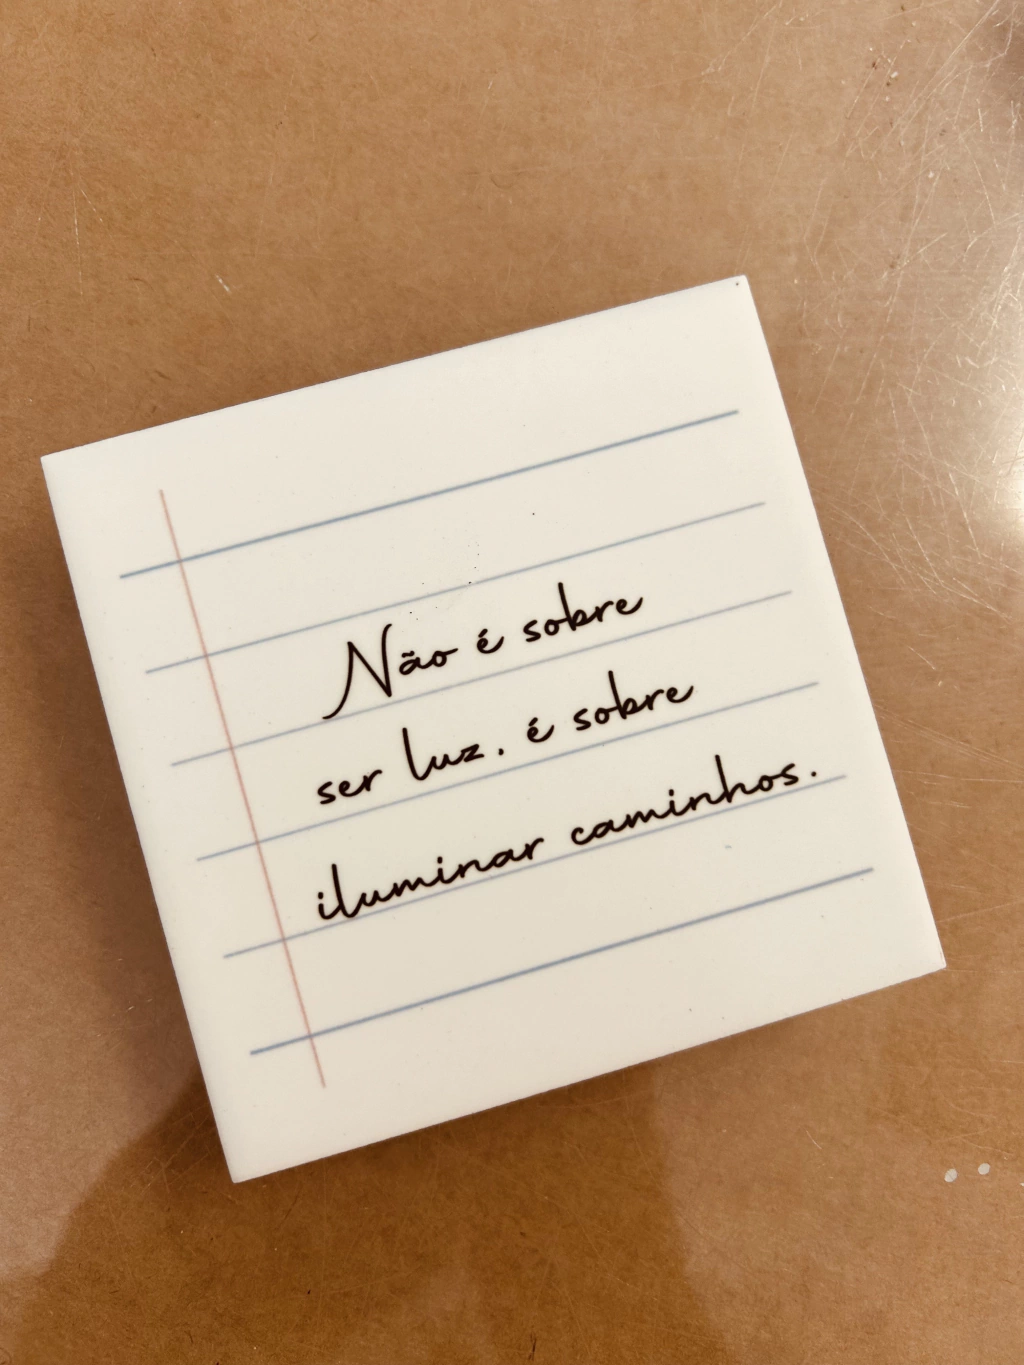 Não é sobre
ser luz. é sobre
iluminar caminhos.